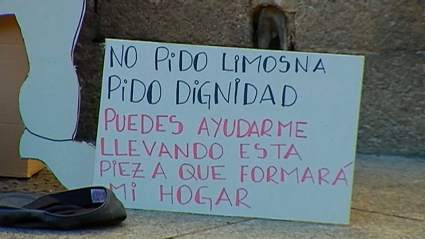 NO PIDO LIMOSNA
PIDO DIGNIDAD
PUEDES AYUDARME
LLEVANDO ESTA
PIEZA QUE FORMARÁ
MI HOGAR